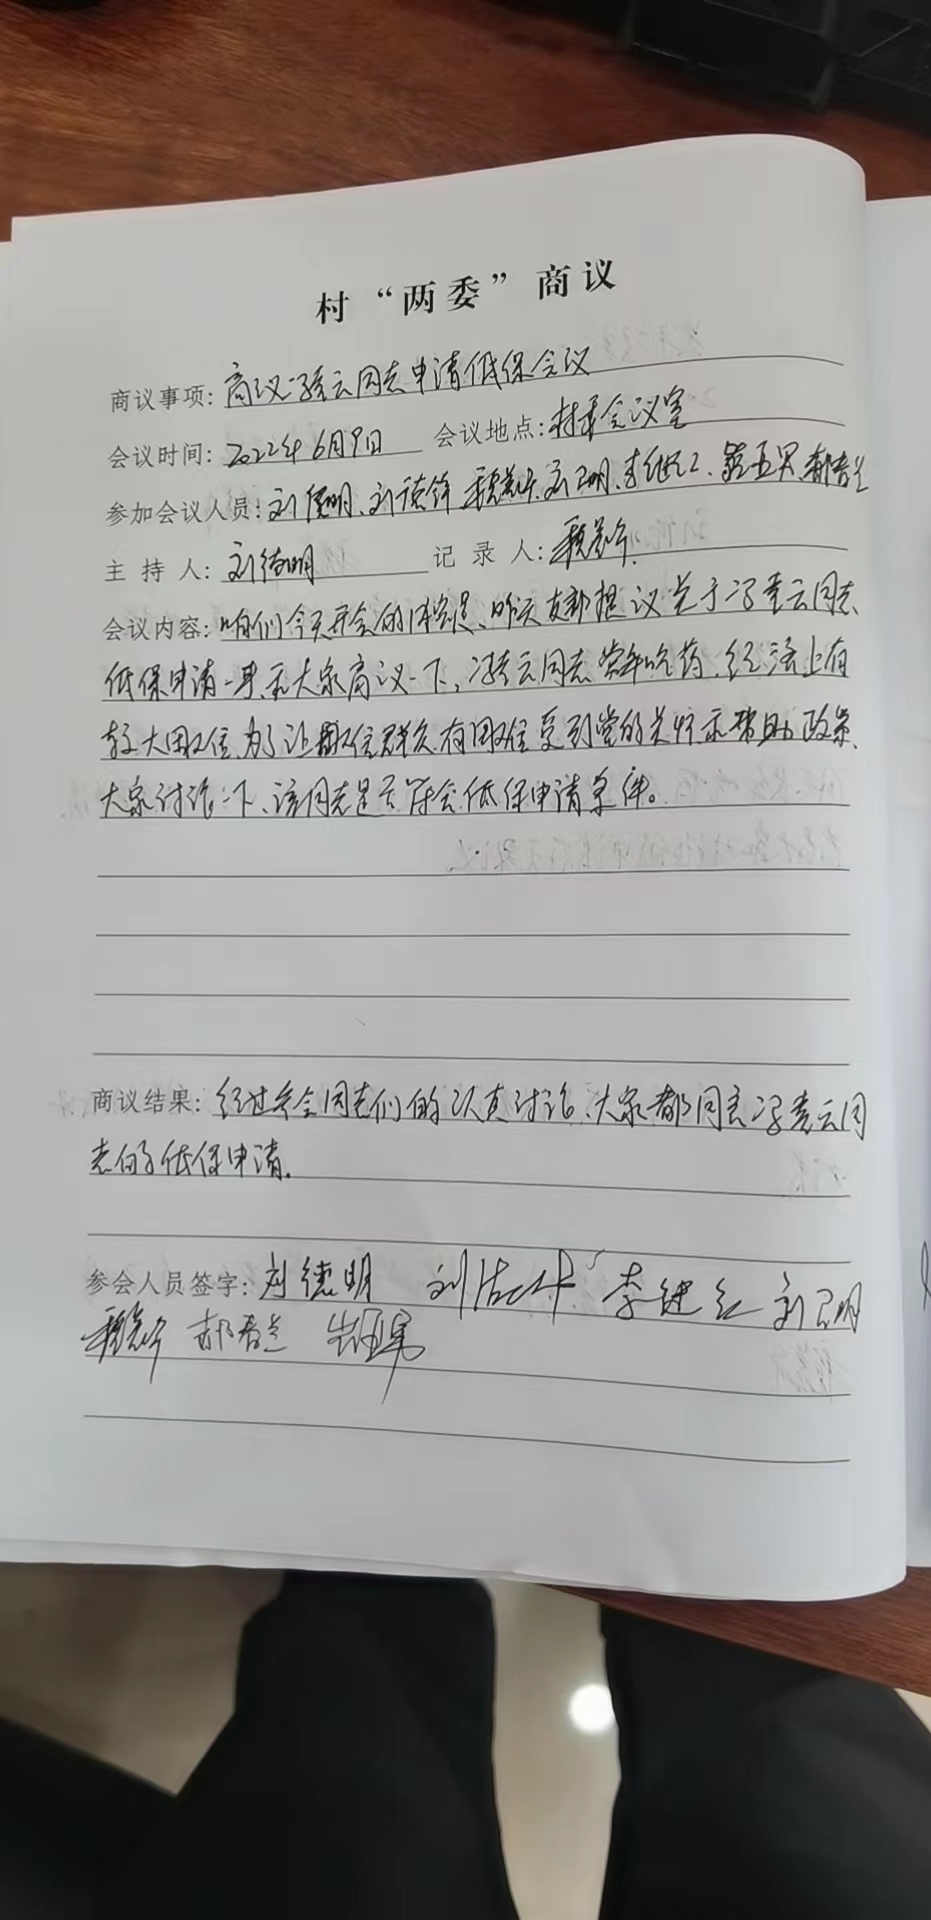 村“两委”商议
商议事项: 商议冯秀云同志申请低保会议
会议时间: 2022年6月9日 会议地点: 村委会议室
参加会议人员: 刘德明、刘
主持人: 刘德明 记录人:
会议内容: 咱们今天开会的内容是、昨天支部提议关于冯秀云同志
低保申请一事、和大家商议一下,冯秀云同志常年吃药、经济上有
较大困难,为了让困难群众有困难受到党的关怀和帮助政策、
大家讨论一下、该同志是否符合低保申请条件。
商议结果: 经过参会同志们的认真讨论、大家都同意冯秀云同
志的低保申请.
参会人员签字: 刘德明 李建红